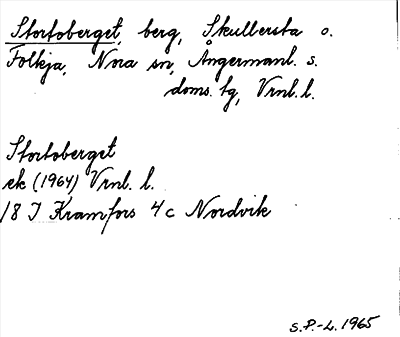 Stortoberget, berg, Skullersta o.
Folkja, Nora sn, Ångermanl. s.
doms. tg, Vrnl. l.
Stortoberget
ek (1964) Vrnl. l.
18 I Kramfors 4 c Nordvik
S.P.-L. 1965